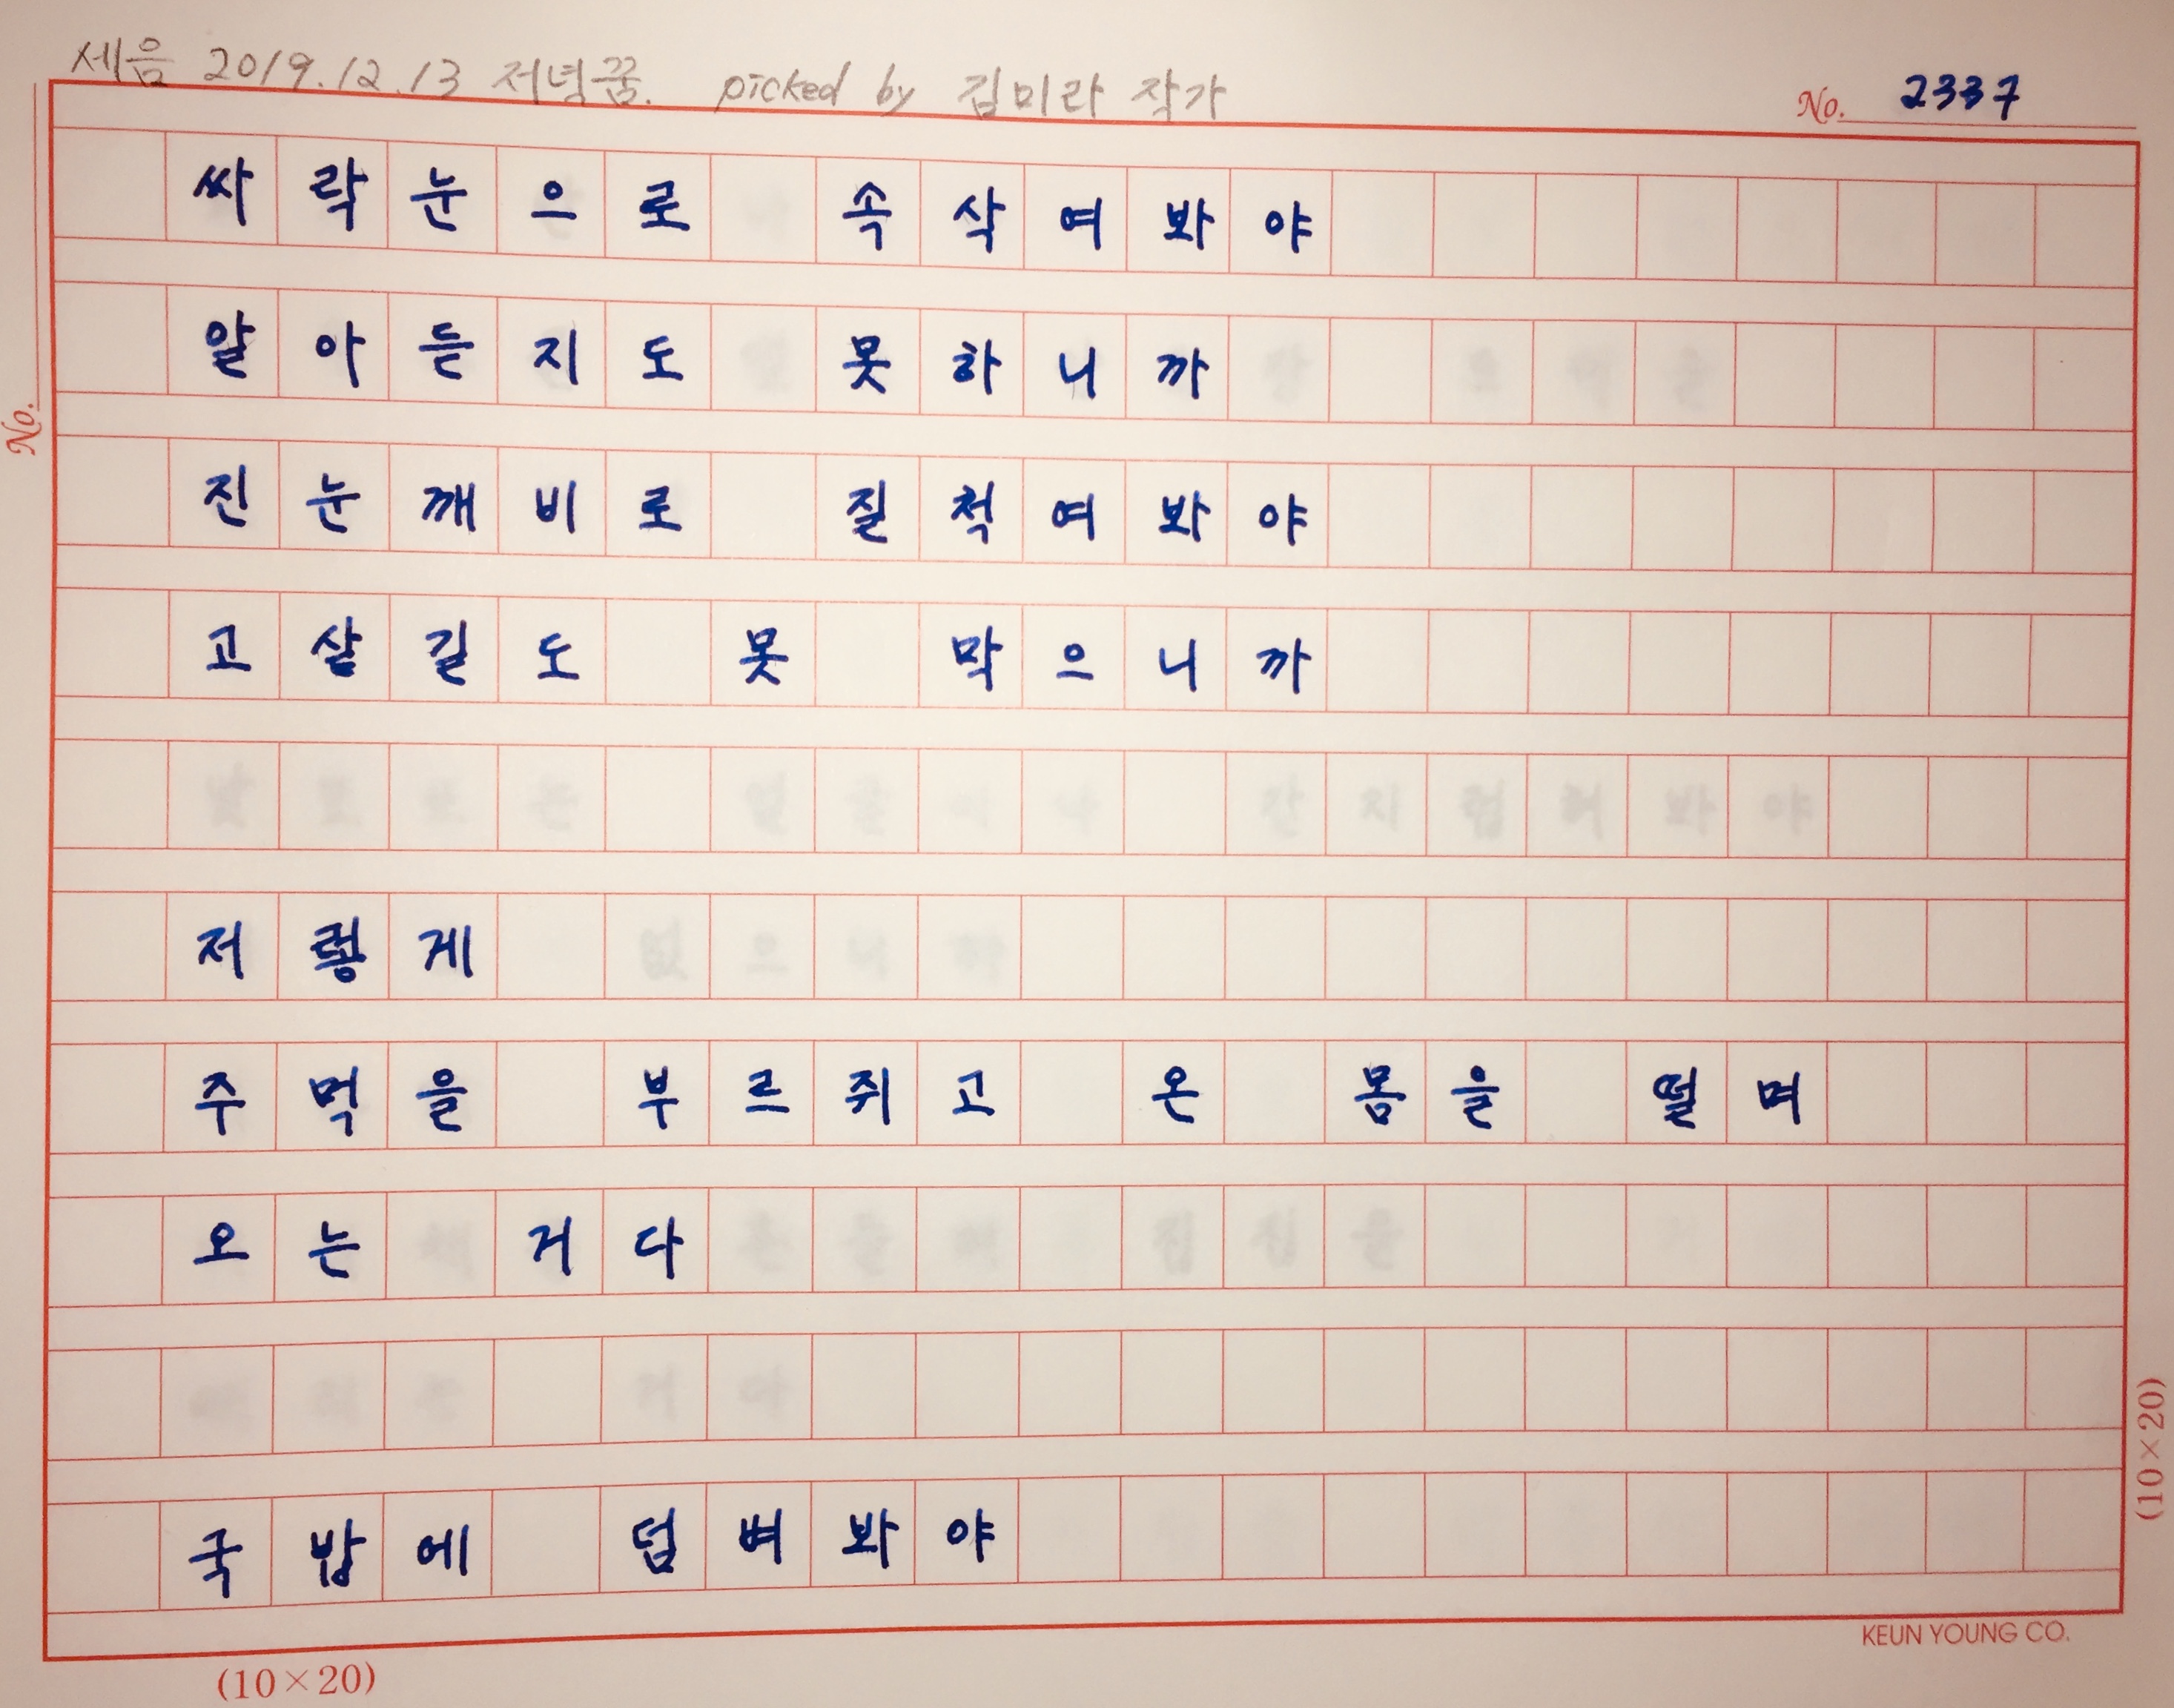 세음 2019.12.13 저녁꿈. picked by 김미라 작가
No. 2337
싸락눈으로 속삭여봐야
알아듣지도 못하니까
No.
진눈깨비로 질척여봐야
고샅길도 못 막으니까
저렇게
주먹을 부르쥐고 온 몸을 떨며
오는 거다
국밥에 덤벼봐야
(10×20)
KEUN YOUNG CO.
(10×20)